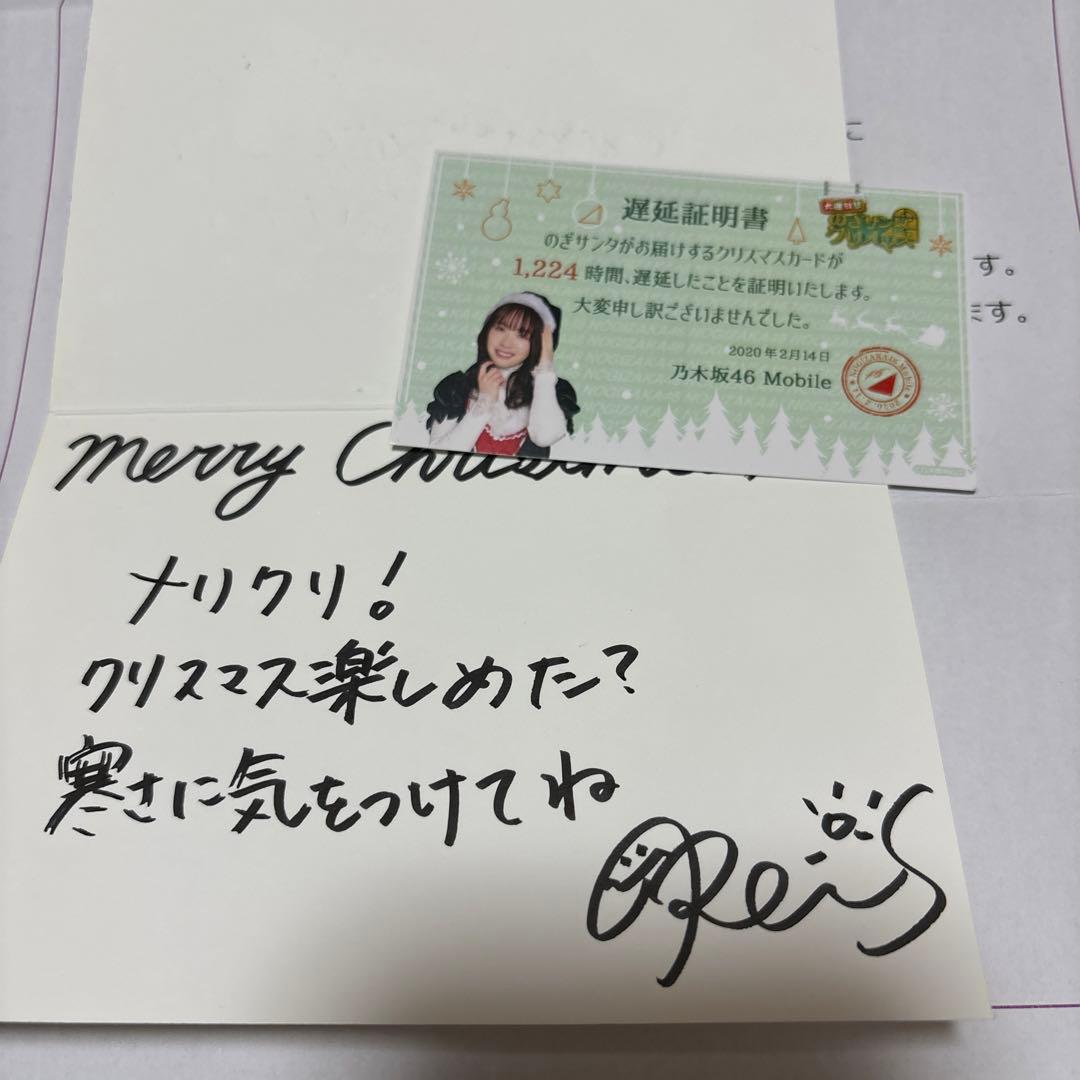 に
す。
ます。
遅延証明書
のぎサンタがお届けするクリスマスカードが
1,224 時間、遅延したことを証明いたします。
大変申し訳ございませんでした。
2020年2月14日
乃木坂46 Mobile
NOGIZAKA46 Mobile
2020.2.14
merry Christmas
メリクリ!
クリスマス楽しめた?
寒さに気をつけてね